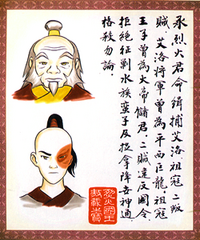 承烈火君命緝捕艾洛祖寇二叛
賊艾洛將軍曾為平西巨龍祖寇
王子曾為大帝儲君二賊違反國令
拒絕征剿水族蠻子及捉拿降世神通
格殺勿論